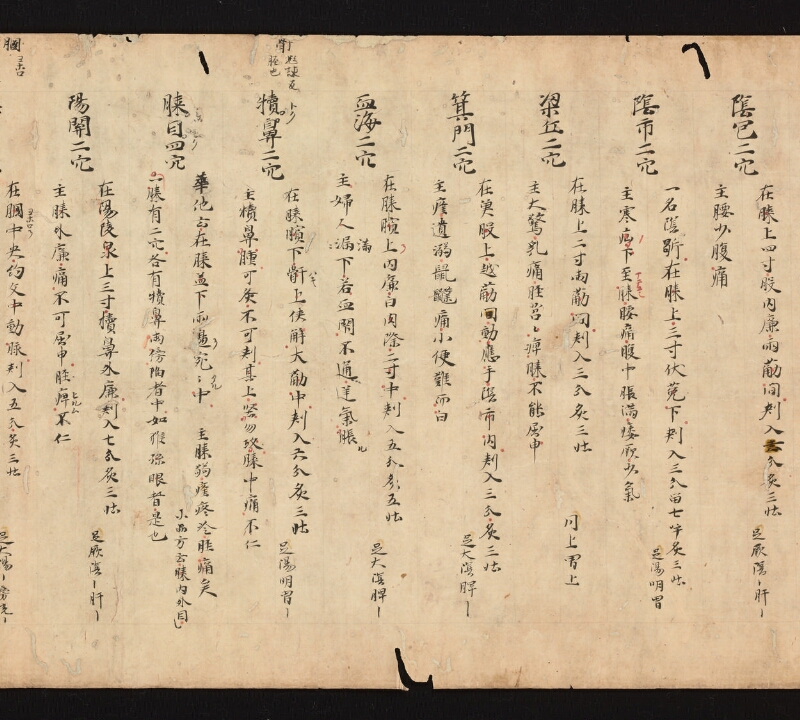 陰包二穴
在膝上四寸股内廉兩筋間刾入六分灸三壯
足厥陰〻肝〻
主腰少腹痛
陰市二穴
一名陰鼎在膝上三寸伏菟下刾入三分留七呼灸三壯
足陽明胃
主寒疝下至膝腰痛腹中脹滿痿厥少氣
梁丘二穴
在膝上二寸兩筋間刾入三分灸三壯
同上胃上
主大驚乳痛脛苕〻痺膝不能屈申
箕門二穴
在漁股上越筋間動應手陰市内刾入三分灸三壯
足大陰脾〻
主癃遺溺鼠鼷痛小便難而白
血海二穴
在膝臏上内廉白肉際二寸中刾入五分灸五壯
足大陰脾〻
主婦人漏下若血閉不通逆氣脹
滿
犢鼻二穴
在膝臏下骭上俠解大筋中刾入六分灸三壯
足陽明胃〻
主犢鼻腫可灸不可刾其上堅勿攻膝中痛不仁
膝目四穴
華他云在膝蓋下兩邊宛〻中
主膝弱癃疼冷脛痛矣
小品方云膝内外目
一膝有二穴各有犢鼻兩傍陷者中如猴孫眼者是也
陽關二穴
在陽陵泉上三寸犢鼻外廉刾入七分灸三壯
足厥陰〻肝〻
主膝外廉痛不可屈申脛痺不仁
在膕中央約文中動脉刾入五分灸三壯
足太陽〻旁光〻
膕